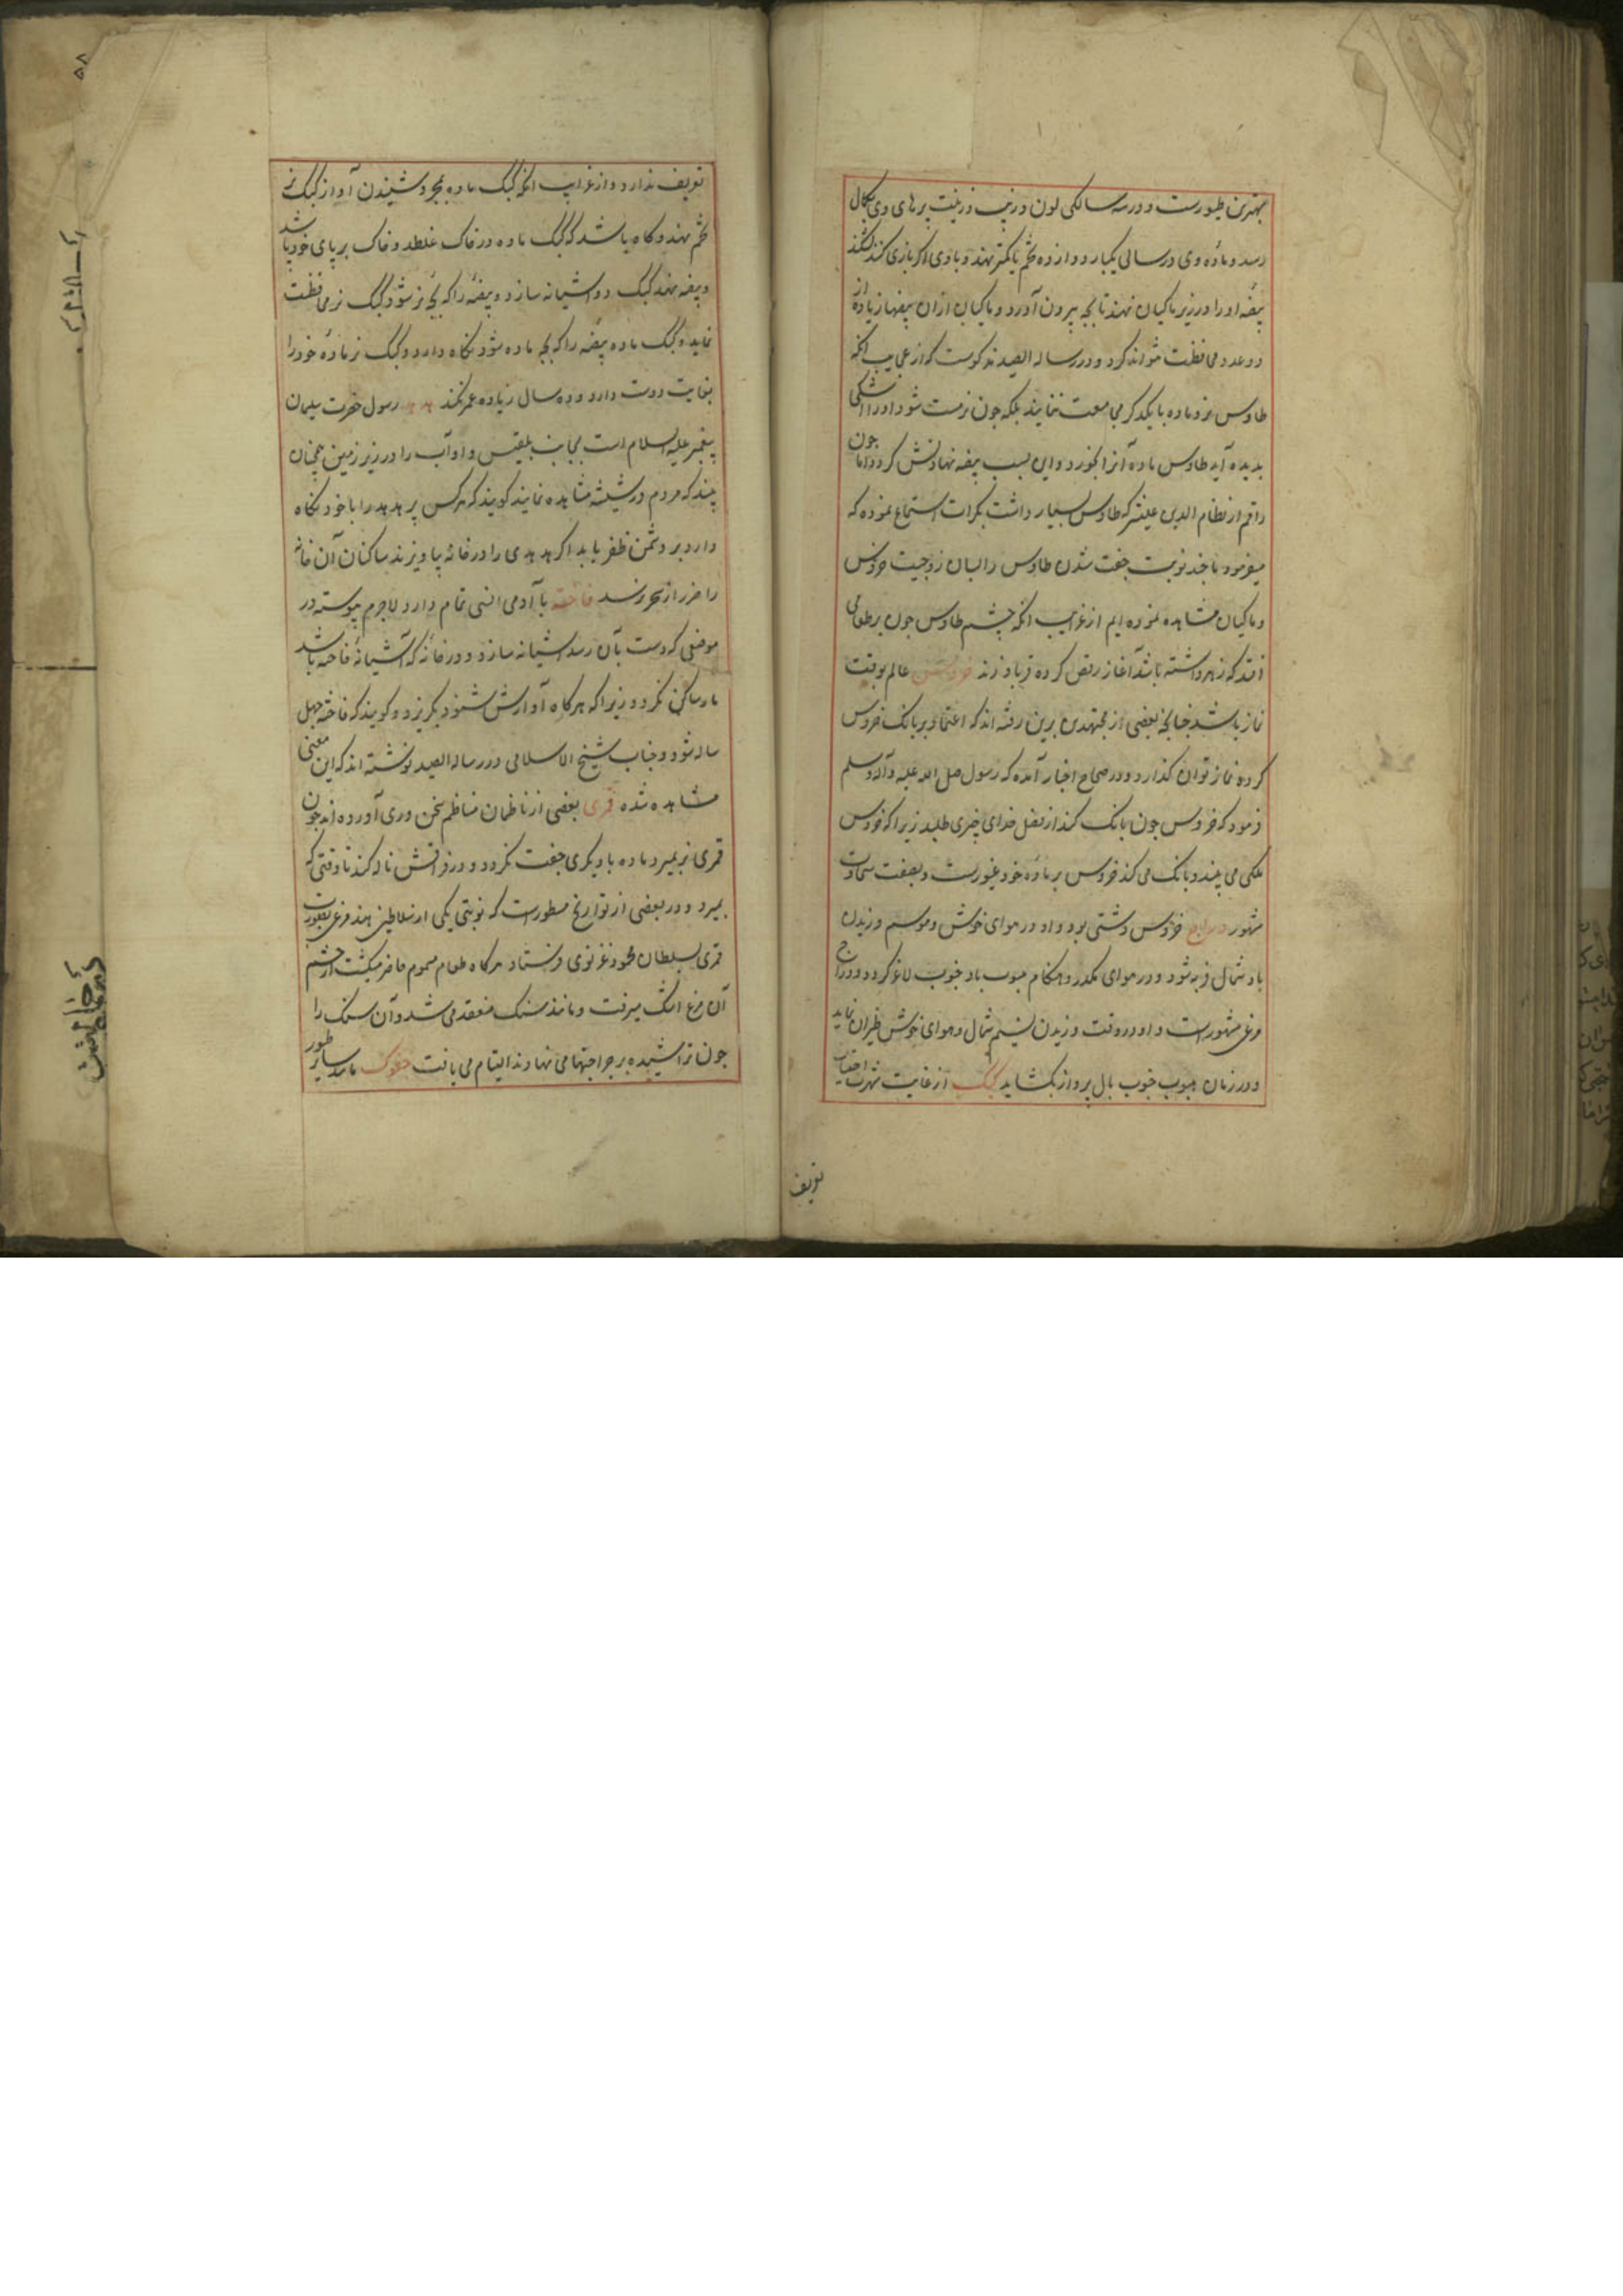 بهترین طیورست و در سه سالکی لون و زیب و زینت پرهای وی بکمال
رسد و مادهٔ وی در سالی یکبار دوازده تخم یا کمتر نهد و با وی اکر بازی کنند بشکند
بیضهٔ او را در زیر ماکیان نهند تا بچه بیرون آورد و ماکیان ازان بیضها زیاده از
دو عدد محافظت نتواند کرد و در رساله الصید مذکورست که از عجایب آنکه
طاوس نر و ماده با یکدیکر مجامعت ننمایند بلکه چون نر مست شود او را اشکی
بدیده آید طاوس ماده آنرا بخورد و این بسبب بیضه نهادنش کردد اما چون
راقم از نظام الدین علیشیر که طاوس بسیار داشت بکرات استماع نموده که
میفرمود ما چند نوبت جفت شدن طاوس را بسان زوجیت خروس
و ماکیان مشاهده نموده ایم از غرایب آنکه چشم طاوس چون بر طعامی
افتد که زهر داشته باشد آغاز رقص کرده فریاد زند خروس عالم بوقت
نماز باشد چنانچه بعضی از مجتهدین برین رفته اند که اعتماد بر بانک خروس
کرده نماز توان کذارد و در صحاح اخبار آمده که رسول صلی الله علیه و آله و سلم
فرمود که خروس چون بانک کند از فضل خدای چیزی طلبید زیرا که خروس
ملکی می بیند و بانک می کند خروس بر مادهٔ خود غیورست و بصفت سخاوت
مشهور دراج خروس دشتی بود و او در هوای خوش و موسم وزیدن
باد شمال فربه شود و در هوای مکدر و هنکام هبوب باد جنوب لاغر کردد و دراج
مرغی مشهورست و او در وقت وزیدن نسیم شمال و هوای خوش طیران نماید
و در زمان هبوب جنوب بال پرواز نکشاید کبک از غایت شهرت احتیاج
تعریف
تعریف ندارد و از غرایب آنکه کبک ماده بمجرد شنیدن آواز کبک نر
تخم نهد و کاه باشد که کبک ماده در خاک غلطد و خاک بر پای خود پاشد
و بیضه نهد کبک دو آشیانه سازد و بیضهٔ را که بچه نر شود کبک نر محافظت
نماید و کبک ماده بیضه را که بچه ماده شود نکاه دارد و کبک نر مادهٔ خود را
بغایت دوست دارد و ده سال زیاده عمر نکند هدهد رسول حضرت سلیمان
پیغمبر علیه السلام است بجانب بلقیس و او آب را در زیر زمین همچنان
بیند که مردم در شیشه مشاهده نمایند کویند که هر کس پر هدهد را با خود نکاه
دارد بر دشمن ظفر یابد اکر هدهدی را در خانه بیاویزند ساکنان آن خانه
را ضرر از سحر نرسد فاخته با آدمی انسی تمام دارد لاجرم پیوسته در
موضعی که دست بآن رسد آشیانه سازد و در خانه که آشیانهٔ فاخته باشد
مار ساکن نکردد زیرا که هر کاه آوازش شنود بکریزد و کویند که فاخته چهل
ساله شود و جناب شیخ الاسلامی در رساله الصید نوشته اند که این معنی
مشاهده شده قمری بعضی از ناظمان مناظم سخن وری آورده اند که چون
قمری نر بمیرد ماده با دیکری جفت نکردد و در فراقش ناله کند تا وقتی که
بمیرد و در بعضی از تواریخ مسطورست که نوبتی یکی از سلاطین هند مرغی بصورت
قمری بسلطان محمود غزنوی فرستاد هر کاه طعام مسموم حاضر میکشت از چشم
آن مرغ اشک میرفت و مانند سنک منعقد می شد و آن سنک را
چون تراشیده بر جراحتها می نهادند التیام می یافت مانند سایر طیور
۵۸